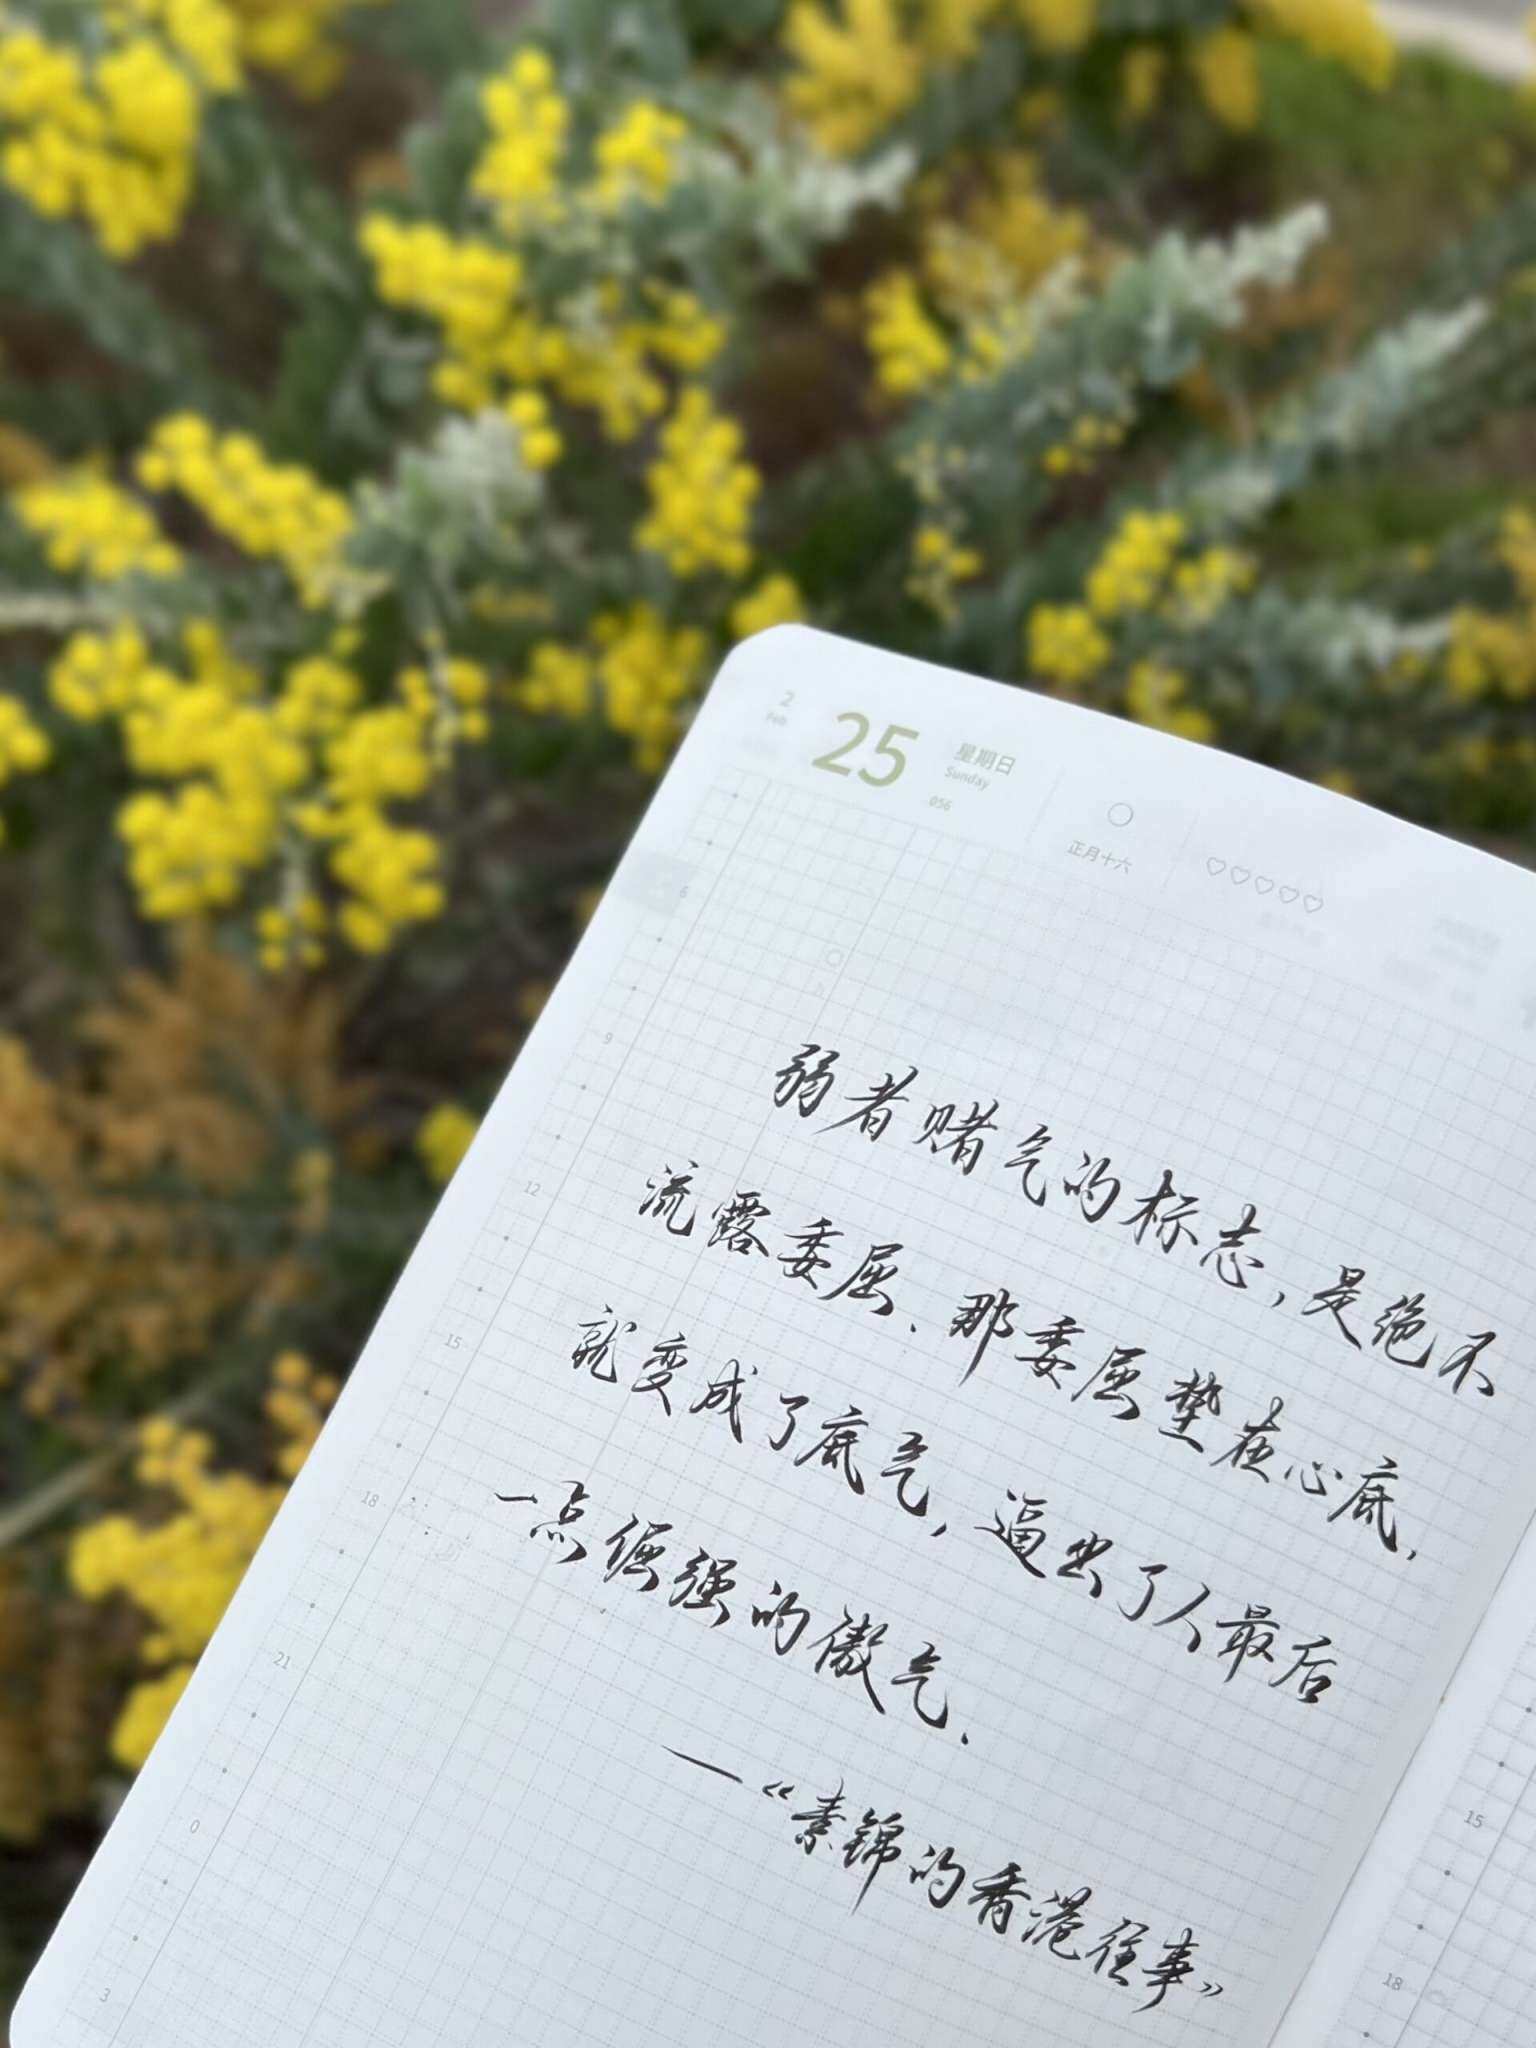 2
Feb
25
星期日
Sunday
056
正月十六
6
9
12
15
18
21
0
3
弱者赌气的标志，是绝不
流露委屈、那委屈垫在心底，
就变成了底气，逼出了人最后
一点倔强的傲气、
—《素锦的香港往事》
15
18